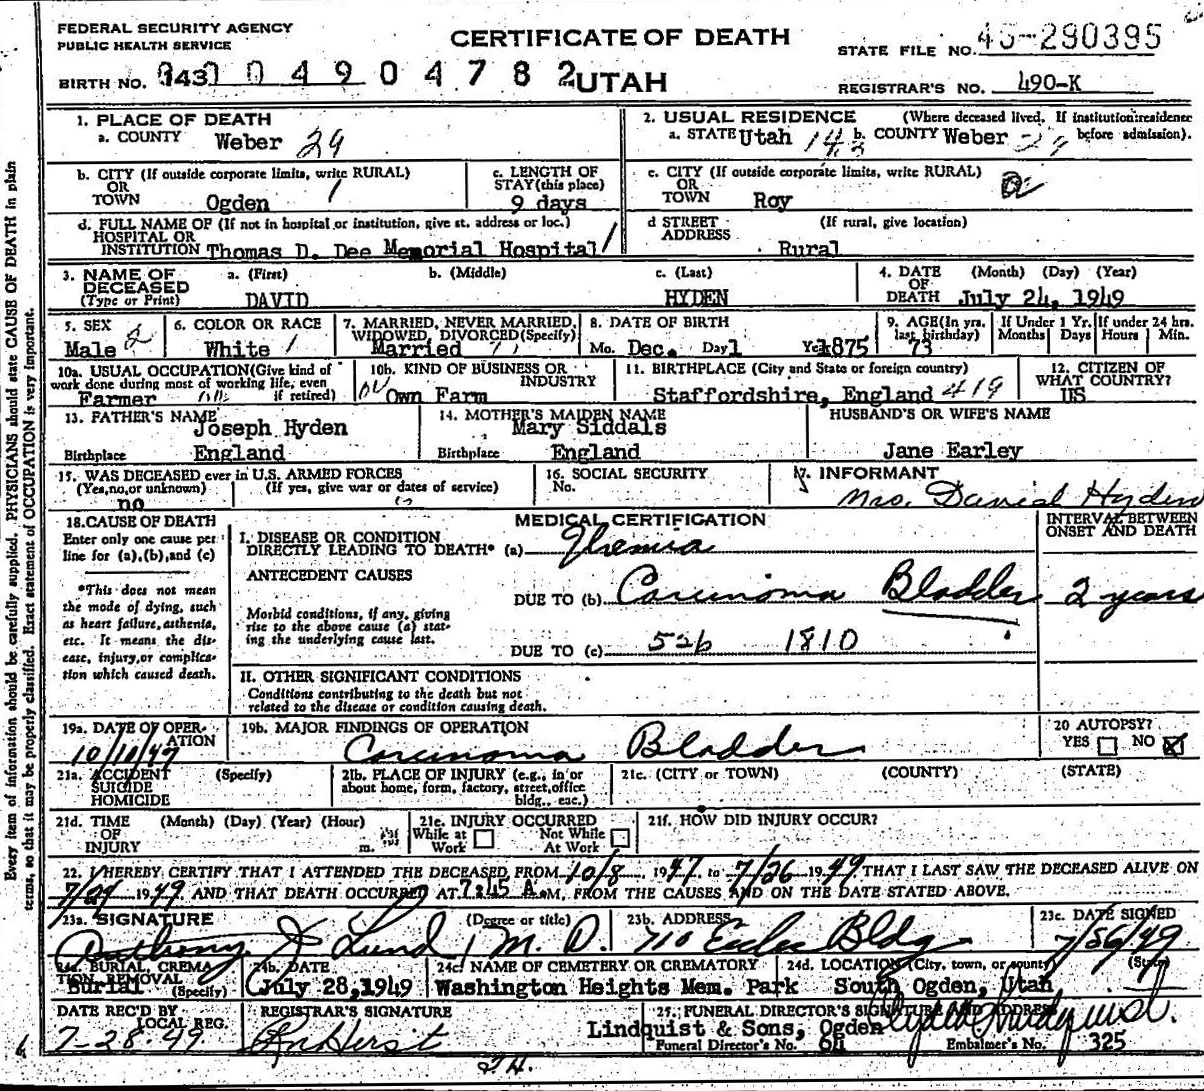 FEDERAL SECURITY AGENCY
PUBLIC HEALTH SERVICE
CERTIFICATE OF DEATH
STATE FILE NO. 45-290395
BIRTH NO. 143 0 4 9 0 4 7 8 2 UTAH
REGISTRAR'S NO. 490-K
1. PLACE OF DEATH
a. COUNTY Weber 29
2. USUAL RESIDENCE (Where deceased lived. If institution: residence before admission).
a. STATE Utah 143 b. COUNTY Weber 29
b. CITY (If outside corporate limits, write RURAL)
OR
TOWN Ogden 1
c. LENGTH OF
STAY (this place)
9 days
c. CITY (If outside corporate limits, write RURAL)
OR
TOWN Roy
d. FULL NAME OF (If not in hospital or institution, give st. address or loc.)
HOSPITAL OR
INSTITUTION Thomas D. Dee Memorial Hospital 1
d STREET (If rural, give location)
ADDRESS Rural
3. NAME OF DECEASED
(Type or Print)
a. (First) DAVID
b. (Middle)
c. (Last) HYDEN
4. DATE OF DEATH (Month) (Day) (Year)
July 24, 1949
5. SEX
Male 2
6. COLOR OR RACE
White 1
7. MARRIED, NEVER MARRIED,
WIDOWED, DIVORCED (Specify)
Married
8. DATE OF BIRTH
Mo. Dec. Day 1 Yr. 1875
9. AGE (In yrs. last birthday)
73
If Under 1 Yr.
Months Days
If under 24 hrs.
Hours Min.
10a. USUAL OCCUPATION (Give kind of
work done during most of working life, even
if retired)
Farmer
10b. KIND OF BUSINESS OR
INDUSTRY
Own Farm
11. BIRTHPLACE (City and State or foreign country)
Staffordshire, England 419
12. CITIZEN OF
WHAT COUNTRY?
US
13. FATHER'S NAME
Joseph Hyden
Birthplace England
14. MOTHER'S MAIDEN NAME
Mary Siddals
Birthplace England
HUSBAND'S OR WIFE'S NAME
Jane Earley
15. WAS DECEASED ever in U.S. ARMED FORCES
(Yes, no, or unknown) (If yes, give war or dates of service)
no
16. SOCIAL SECURITY
No.
17. INFORMANT
Mrs. David Hyden
18. CAUSE OF DEATH
Enter only one cause per
line for (a), (b), and (c)
*This does not mean
the mode of dying, such
as heart failure, asthenia,
etc. It means the dis-
ease, injury, or complica-
tion which caused death.
MEDICAL CERTIFICATION
INTERVAL BETWEEN
ONSET AND DEATH
I. DISEASE OR CONDITION
DIRECTLY LEADING TO DEATH* (a) Uremia
ANTECEDENT CAUSES
DUE TO (b) Carcinoma Bladder 2 years
Morbid conditions, if any, giving
rise to the above cause (a) stat-
ing the underlying cause last.
DUE TO (c) 52b 1810
II. OTHER SIGNIFICANT CONDITIONS
Conditions contributing to the death but not
related to the disease or condition causing death.
19a. DATE OF OPER-
ATION
10/10/47
19b. MAJOR FINDINGS OF OPERATION
Carcinoma Bladder
20 AUTOPSY?
YES NO X
21a. ACCIDENT (Specify)
SUICIDE
HOMICIDE
21b. PLACE OF INJURY (e.g., in or
about home, form, factory, street, office
bldg., eac.)
21c. (CITY or TOWN) (COUNTY) (STATE)
21d. TIME (Month) (Day) (Year) (Hour)
OF
INJURY m.
21e. INJURY OCCURRED
While at Work Not While At Work
21f. HOW DID INJURY OCCUR?
22. I HEREBY CERTIFY THAT I ATTENDED THE DECEASED FROM 10/8, 1947 to 7/26 1949 THAT I LAST SAW THE DECEASED ALIVE ON
7/24 1949 AND THAT DEATH OCCURRED AT 7:45 A.M, FROM THE CAUSES AND ON THE DATE STATED ABOVE.
23a. SIGNATURE (Degree or title)
Anthony J Lund M.D.
23b. ADDRESS
710 Eccles Bldg
23c. DATE SIGNED
7/26/49
24a. BURIAL, CREMA
TION REMOVAL
(Specify)
Burial
24b. DATE
July 28, 1949
24c NAME OF CEMETERY OR CREMATORY
Washington Heights Mem. Park
24d. LOCATION (City, town, or county) (State)
South Ogden, Utah
DATE REC'D BY
LOCAL REG.
7-28-49
REGISTRAR'S SIGNATURE
25. FUNERAL DIRECTOR'S SIGNATURE AND ADDRESS
Lindquist & Sons, Ogden Clyde Lindquist.
Funeral Director's No. 64 Embalmer's No. 325
Every item of information should be carefully supplied. PHYSICIANS should state CAUSE OF DEATH in plain
terms, so that it may be properly classified. Exact statement of OCCUPATION is very important.